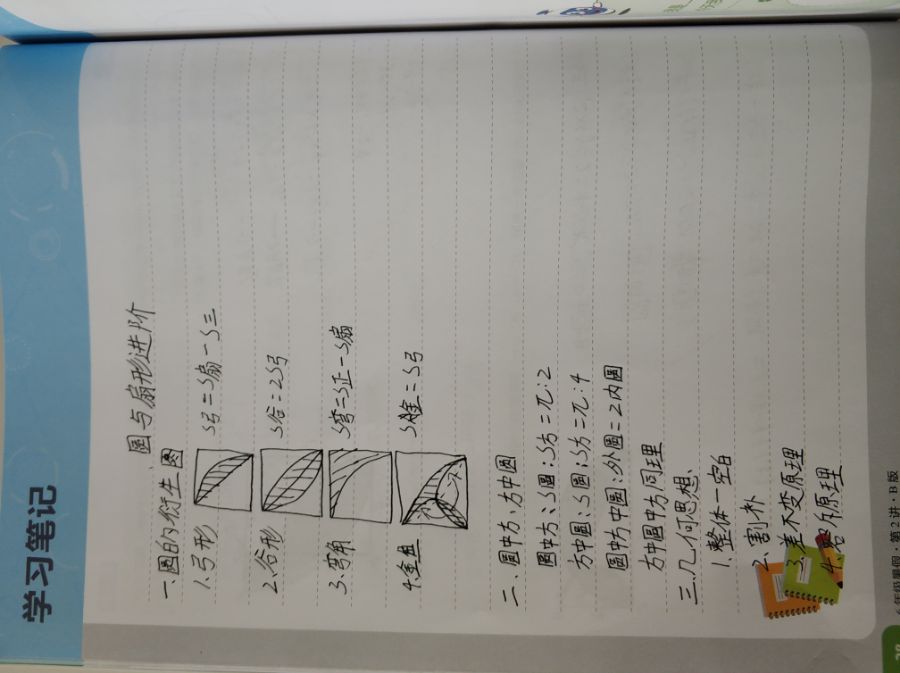 学习笔记
圆与扇形进阶
一.圆的衍生图
1.弓形 S弓=S扇-S三
2.谷形 S谷=2S弓
3.弯角 S弯=S正-S扇
4. S=S弓
二、圆中方、方中圆
圆中方:S圆:S方=π:2
方中圆:S圆:S方=π:4
圆中方中圆:外圆=2内圆
方中圆中方,同理
三.几何思想、
1.整体-空白
2.割补
3.差不变原理
4.容斥原理
年级暑假·第2讲·B版